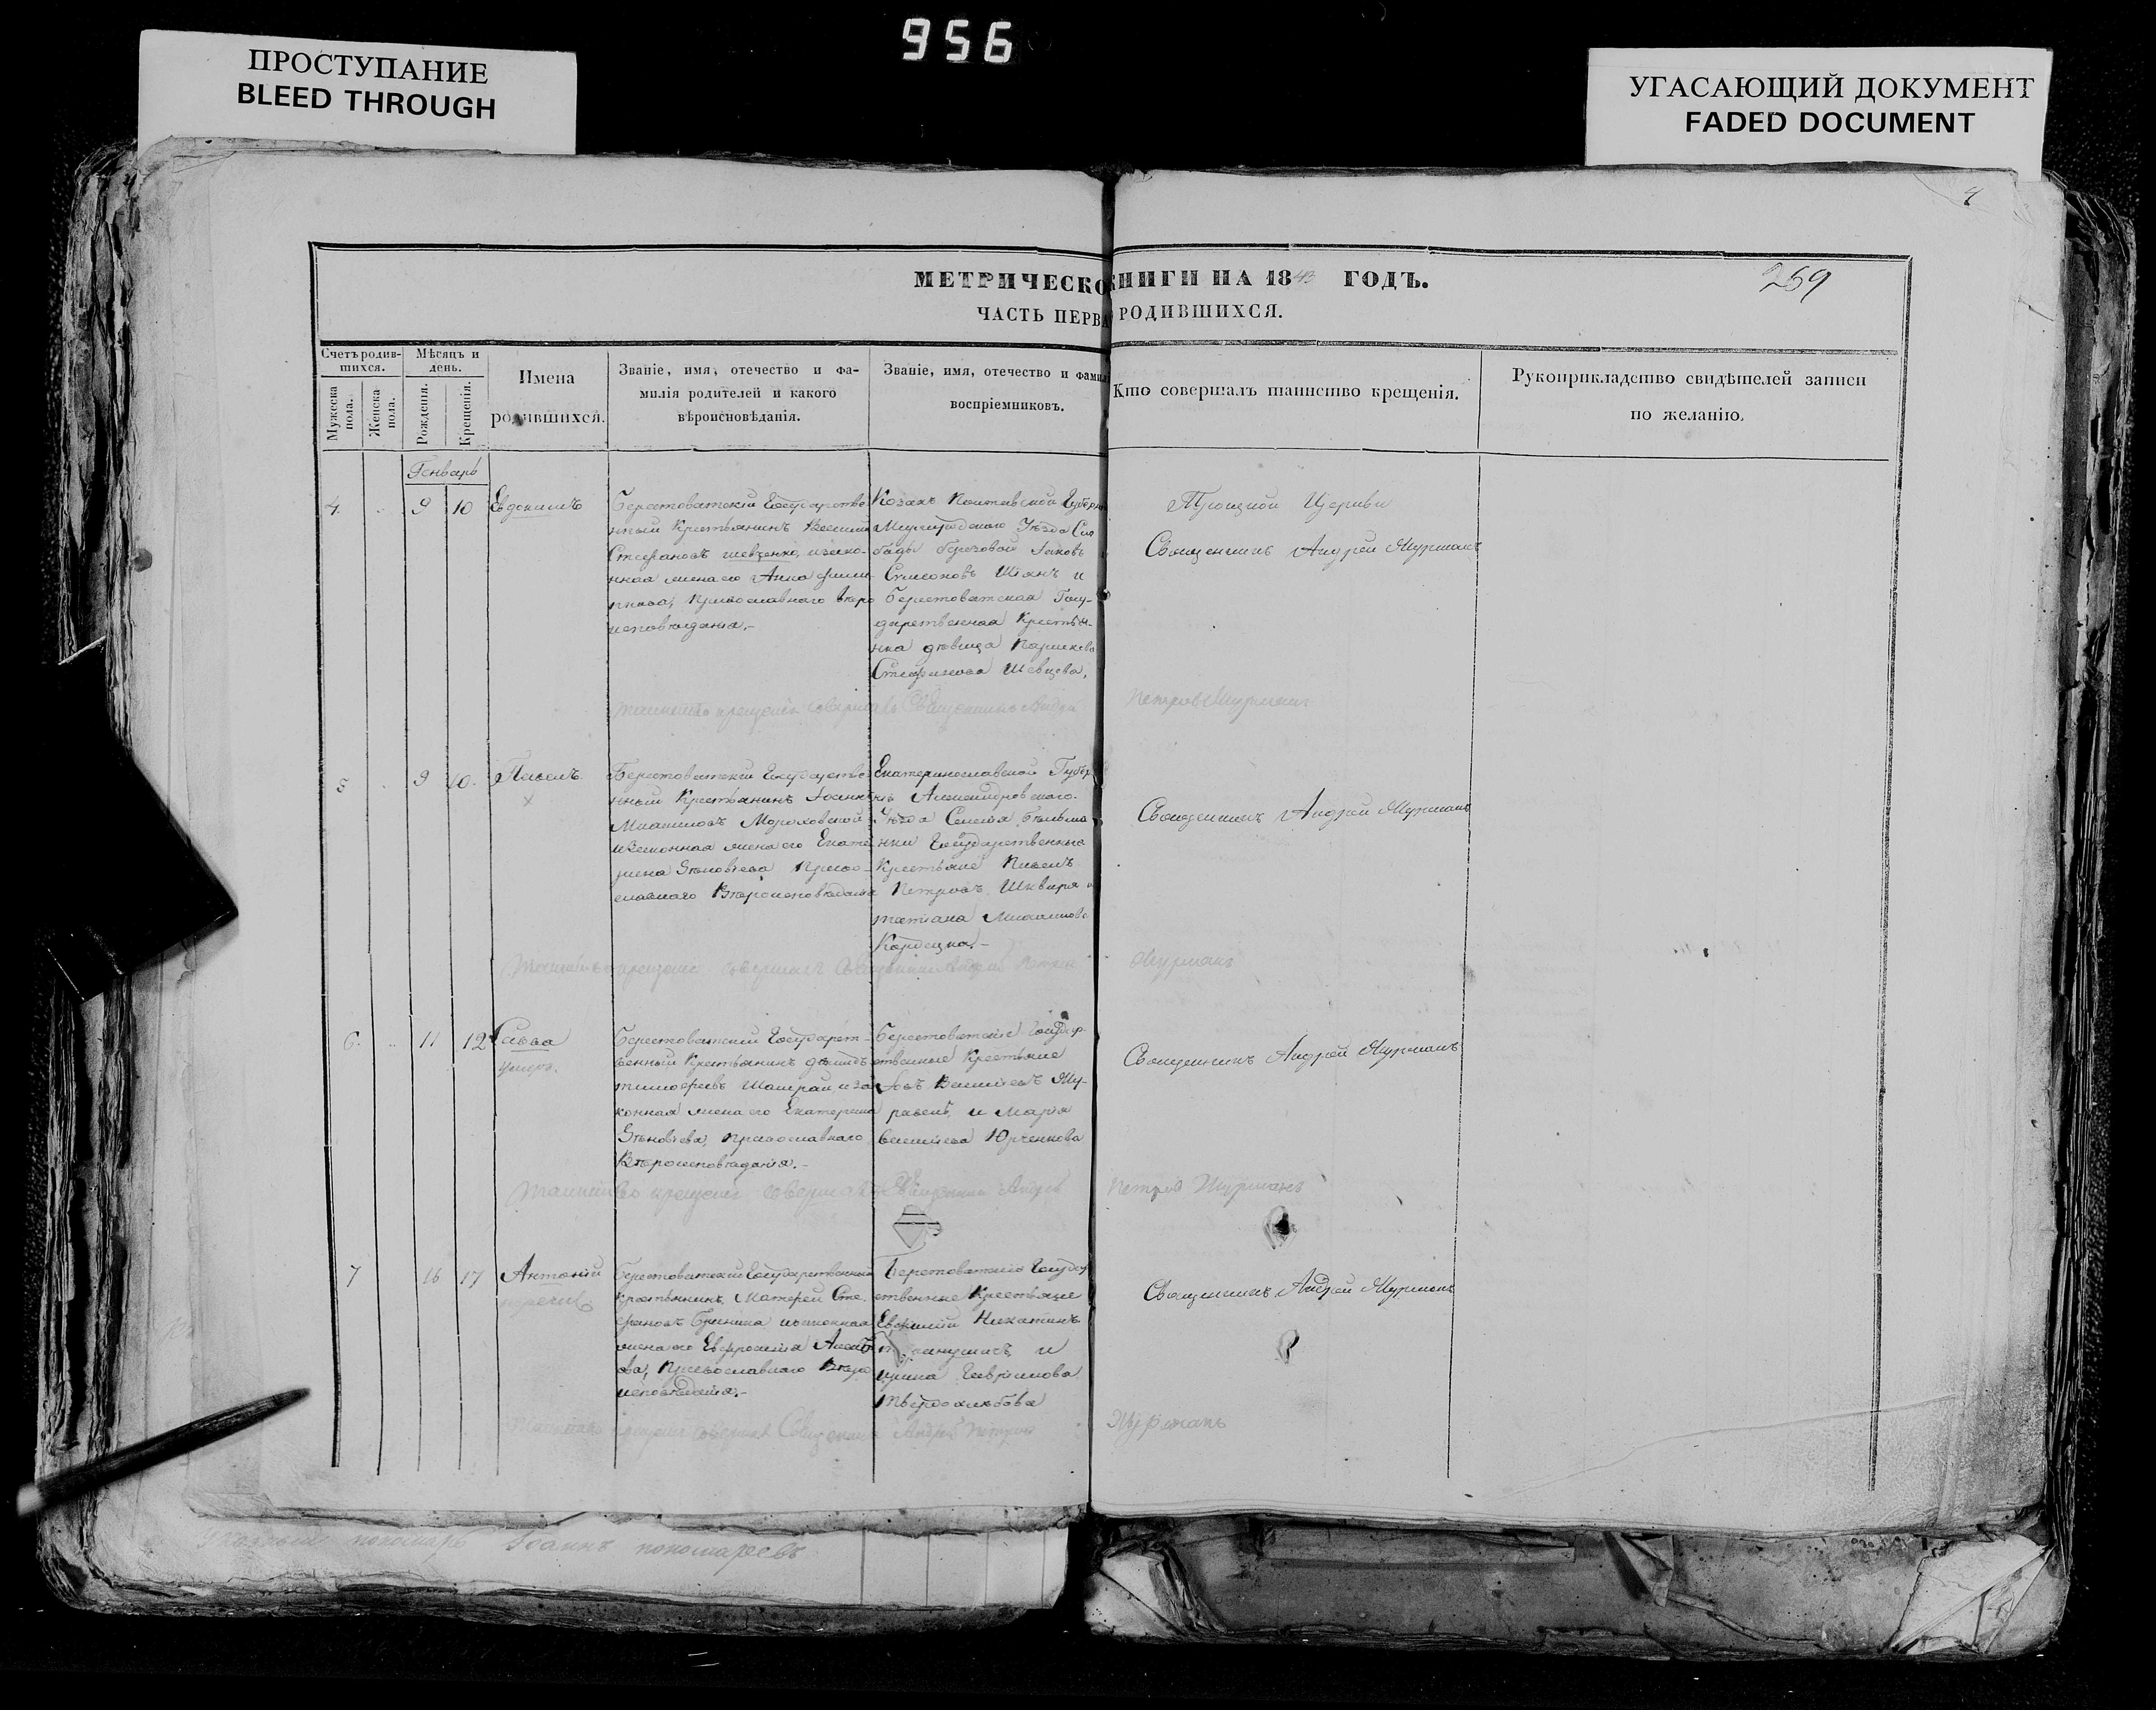 956
ПРОСТУПАНИЕ
BLEED THROUGH
УГАСАЮЩИЙ ДОКУМЕНТ
FADED DOCUMENT
МЕТРИЧЕСКО КНИГИ НА 1843 ГОДЪ.
269
ЧАСТЬ ПЕРВА РОДИВШИХСЯ.
Счетъ родив-
шихся.
Мужеска
пола.
Женска
пола.
Мѣсяцъ и
день.
Рожденія.
Крещенія.
Имена
родившихся.
Званіе, имя, отечество и фа-
милія родителей и какого
вѣроисповѣданія.
Званіе, имя, отечество и фами
воспріемниковъ.
Кто совершалъ таинство крещенія.
Рукоприкладство свидѣтелей записи
по желанію.
Генварь
4.
9
10
Евдокимъ
Берестоватскій Государстве
нный Крестьянинъ Василий
Стефановъ Шевченко, и зако-
нная жена его Анна Фили-
пова, Православнаго вѣро
исповѣданія.-
Козакъ Полтавской Губерн
Миргородскаго Уѣзда Сло
боды Березовой Іаковъ
Симоновъ Шіянъ и
Берестоватская Госу-
дарственная Крестьян-
ка дѣвица Параскева
Стефанова Шевцева,
Троицкой Церкви
Священникъ Андрей Мурманъ
таинство крещенія совершалъ Священникъ Андрей
Петровъ Мурманъ
5
9
10.
Павелъ
Берестоватскій Государстве
нный Крестьянинъ Іоаннъ
Михаиловъ
и законная жена его Екате
рина Зѣновіева Право-
славнаго Вѣроисповѣданія
Екатеринославской Губер
ніи Александровскаго
Уѣзда Селенія Бѣльма
нки Государственные
Крестьяне Павелъ
Петровъ Шквиря и
татіана Михаилова
Священникъ Андрей Мурманъ
Таинство крещенія совершалъ Священникъ Андрей Петров
Мурманъ
6.
11
12
Савва
умеръ.
Берестоватскій Государст-
венный Крестьянинъ
тимофеевъ Шаптрай и за
конная жена его Екатерина
Зѣновіева, Православнаго
Вѣроисповѣданія.-
Берестоватскіе Государ-
ственные Крестьяне
Іовъ Васильевъ Жу-
равель, и Марія
Васильева Юрченкова
Священникъ Андрей Мурманъ
Таинство крещенія совершалъ Священникъ Андрей
Петровъ Мурманъ
7
16
17
Антоній
Берестоватскій Государственный
Крестьянинъ Матфей Сте-
фановъ и законная
жена его Евфросинія
Православнаго Вѣро
исповѣданія.-
Берестоватскіе Государ
ственные Крестьяне
Евфимій Никитинъ
и
Ирина Гаврилова
твердохлѣбова
Священникъ Андрей Мурманъ
Таинство крещенія совершалъ Священникъ Андрей Петров
Мурманъ
пономарь Іоаннъ пономаревъ